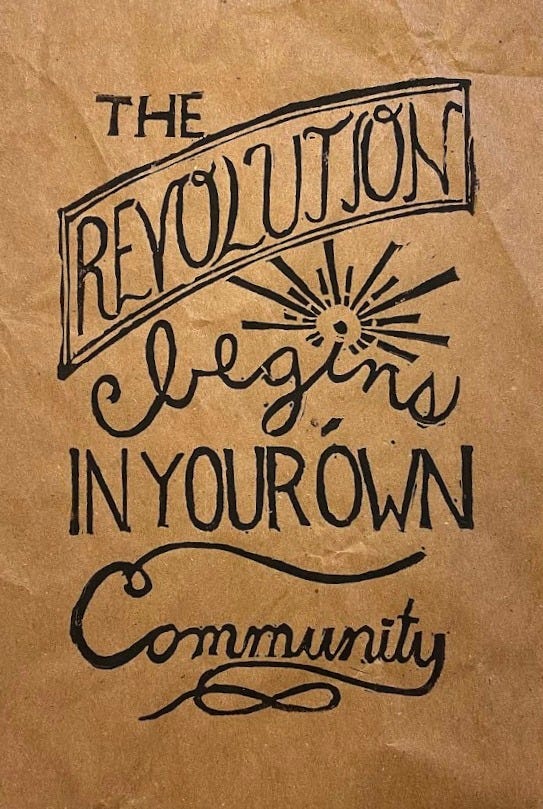 THE
REVOLUTION
begins
IN YOUR OWN
Community